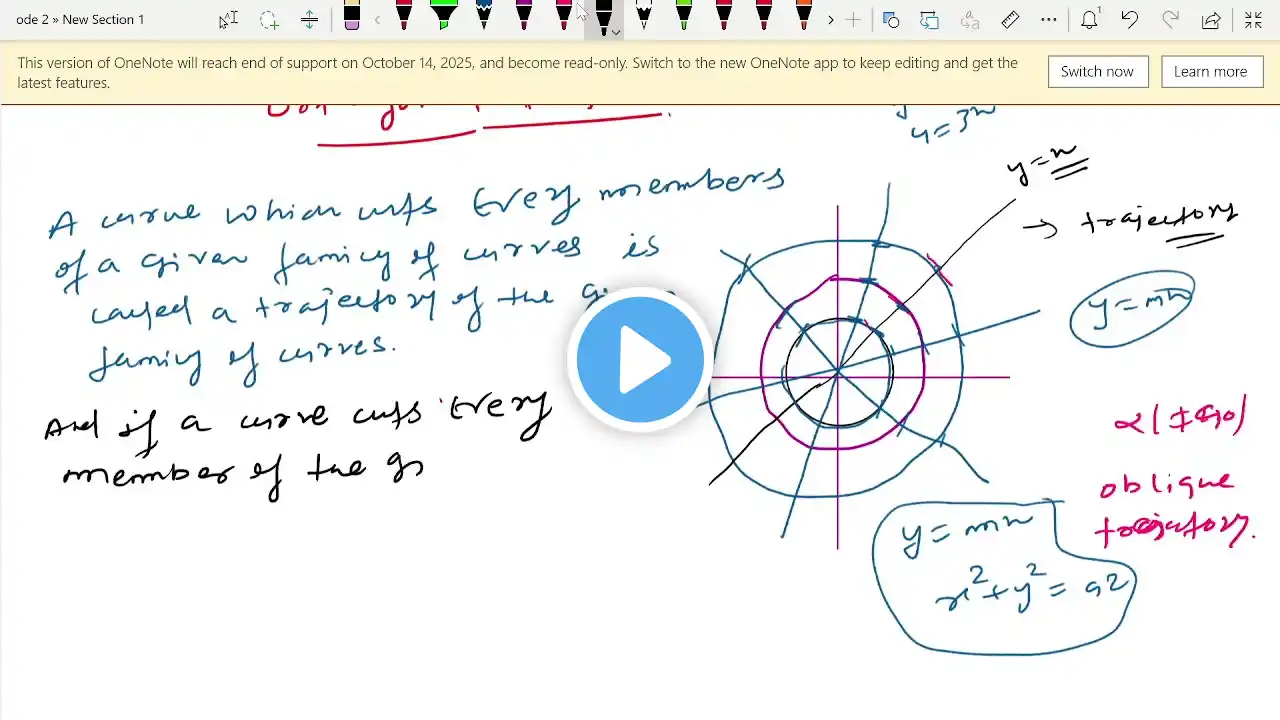 ode 2 » New Section 1
This version of OneNote will reach end of support on October 14, 2025, and become read-only. Switch to the new OneNote app to keep editing and get the
latest features.
Switch now
Learn more
y = 3x
A curve which cuts Every members
of a given family of curves is
called a trajectory of the
family of curves.
And if a curve cuts Every
member of the
y = x
→ trajectory
y = mx
α (≠ 90)
oblique
trajectory.
y = mx
x² + y² = a²